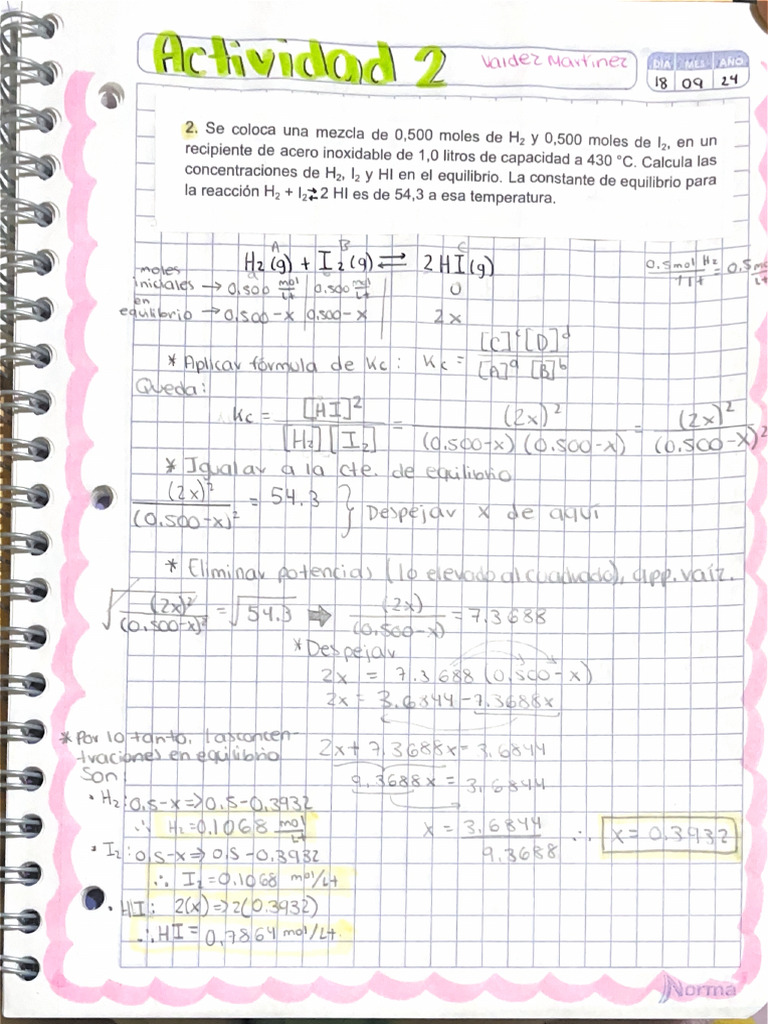 Actividad 2
Valdez Martinez
DÍA MES AÑO
18 09 24
2. Se coloca una mezcla de 0,500 moles de H₂ y 0,500 moles de I₂, en un
recipiente de acero inoxidable de 1,0 litros de capacidad a 430 °C. Calcula las
concentraciones de H₂, I₂ y HI en el equilibrio. La constante de equilibrio para
la reacción H₂ + I₂⇄2 HI es de 54,3 a esa temperatura.
A B C
H₂(g) + I₂(g) ⇌ 2HI(g)
0.5mol H₂ / 1 Lt = 0.5
moles
iniciales → 0.500 mol/Lt | 0.500 mol/Lt | 0
en
equilibrio → 0.500-x | 0.500-x | 2x
* Aplicar fórmula de Kc: Kc = [C]ᶜ[D]ᵈ / [A]ᵃ [B]ᵇ
Queda:
Kc = [HI]² / [H₂][I₂] = (2x)² / (0.500-x)(0.500-x) = (2x)² / (0.500-x)²
* Igualar a la cte. de equilibrio
(2x)² / (0.500-x)² = 54.3 } Despejar x de aquí
* Eliminar potencias (lo elevado al cuadrado), app. raíz.
√(2x)² / (0.500-x)² = √54.3 ⇒ (2x) / (0.500-x) = 7.3688
* Despejar
2x = 7.3688 (0.500-x)
2x = 3.6844 - 7.3688x
2x + 7.3688x = 3.6844
9.3688x = 3.6844
x = 3.6844 / 9.3688 ∴ x = 0.3932
* Por lo tanto, las concen-
traciones en equilibrio
son
• H₂: 0.5-x => 0.5-0.3932
∴ H₂ = 0.1068 mol/Lt
• I₂: 0.5-x => 0.5-0.3932
∴ I₂ = 0.1068 mol/Lt
• HI: 2(x) => 2(0.3932)
∴ HI = 0.7864 mol/Lt.
Norma